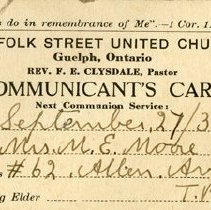 s do in remembrance of Me".—1 Cor. 1
FOLK STREET UNITED CHU
Guelph, Ontario
REV. F. E. CLYSDALE, Pastor
OMMUNICANT'S CAR
Next Communion Service:
September, 27/3
Mrs. M. E. Moore
# 62 Allen Av
ng Elder T.